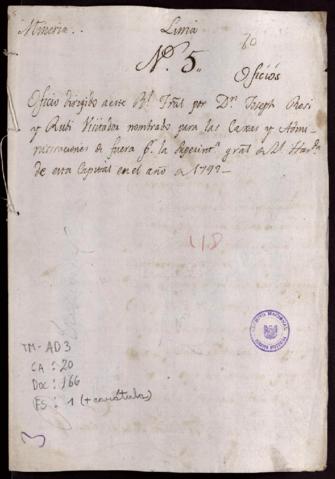 Mineria..
Lima
20
Nº 5,,
Oficios
Oficio dirigido a este Rl. Tral. por Dn. Joseph Rosi
y Rubi Visitador nombrado para las Caxas y Admi-
nistraciones de fuera pr. la Superintª. gral. de Rl. Hazda.
de esta Capital en el año de 1792_
118
TM-AD3
CA : 20
Doc : 166
FS : 1 (+ carátula)
3